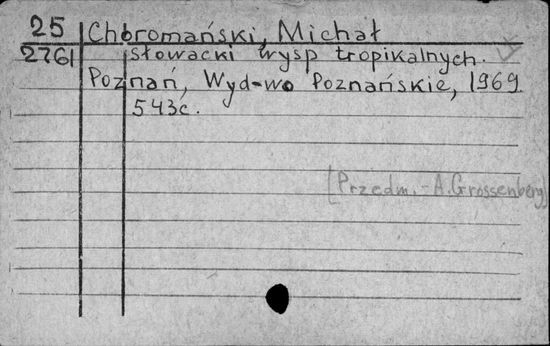 25 Chbromański, Michał
2761 słowacki wysp tropikalnych.
Poznań, Wyd-wo Poznańskie, 1969.
543c.
[Przedm. - A. Grossenberg]